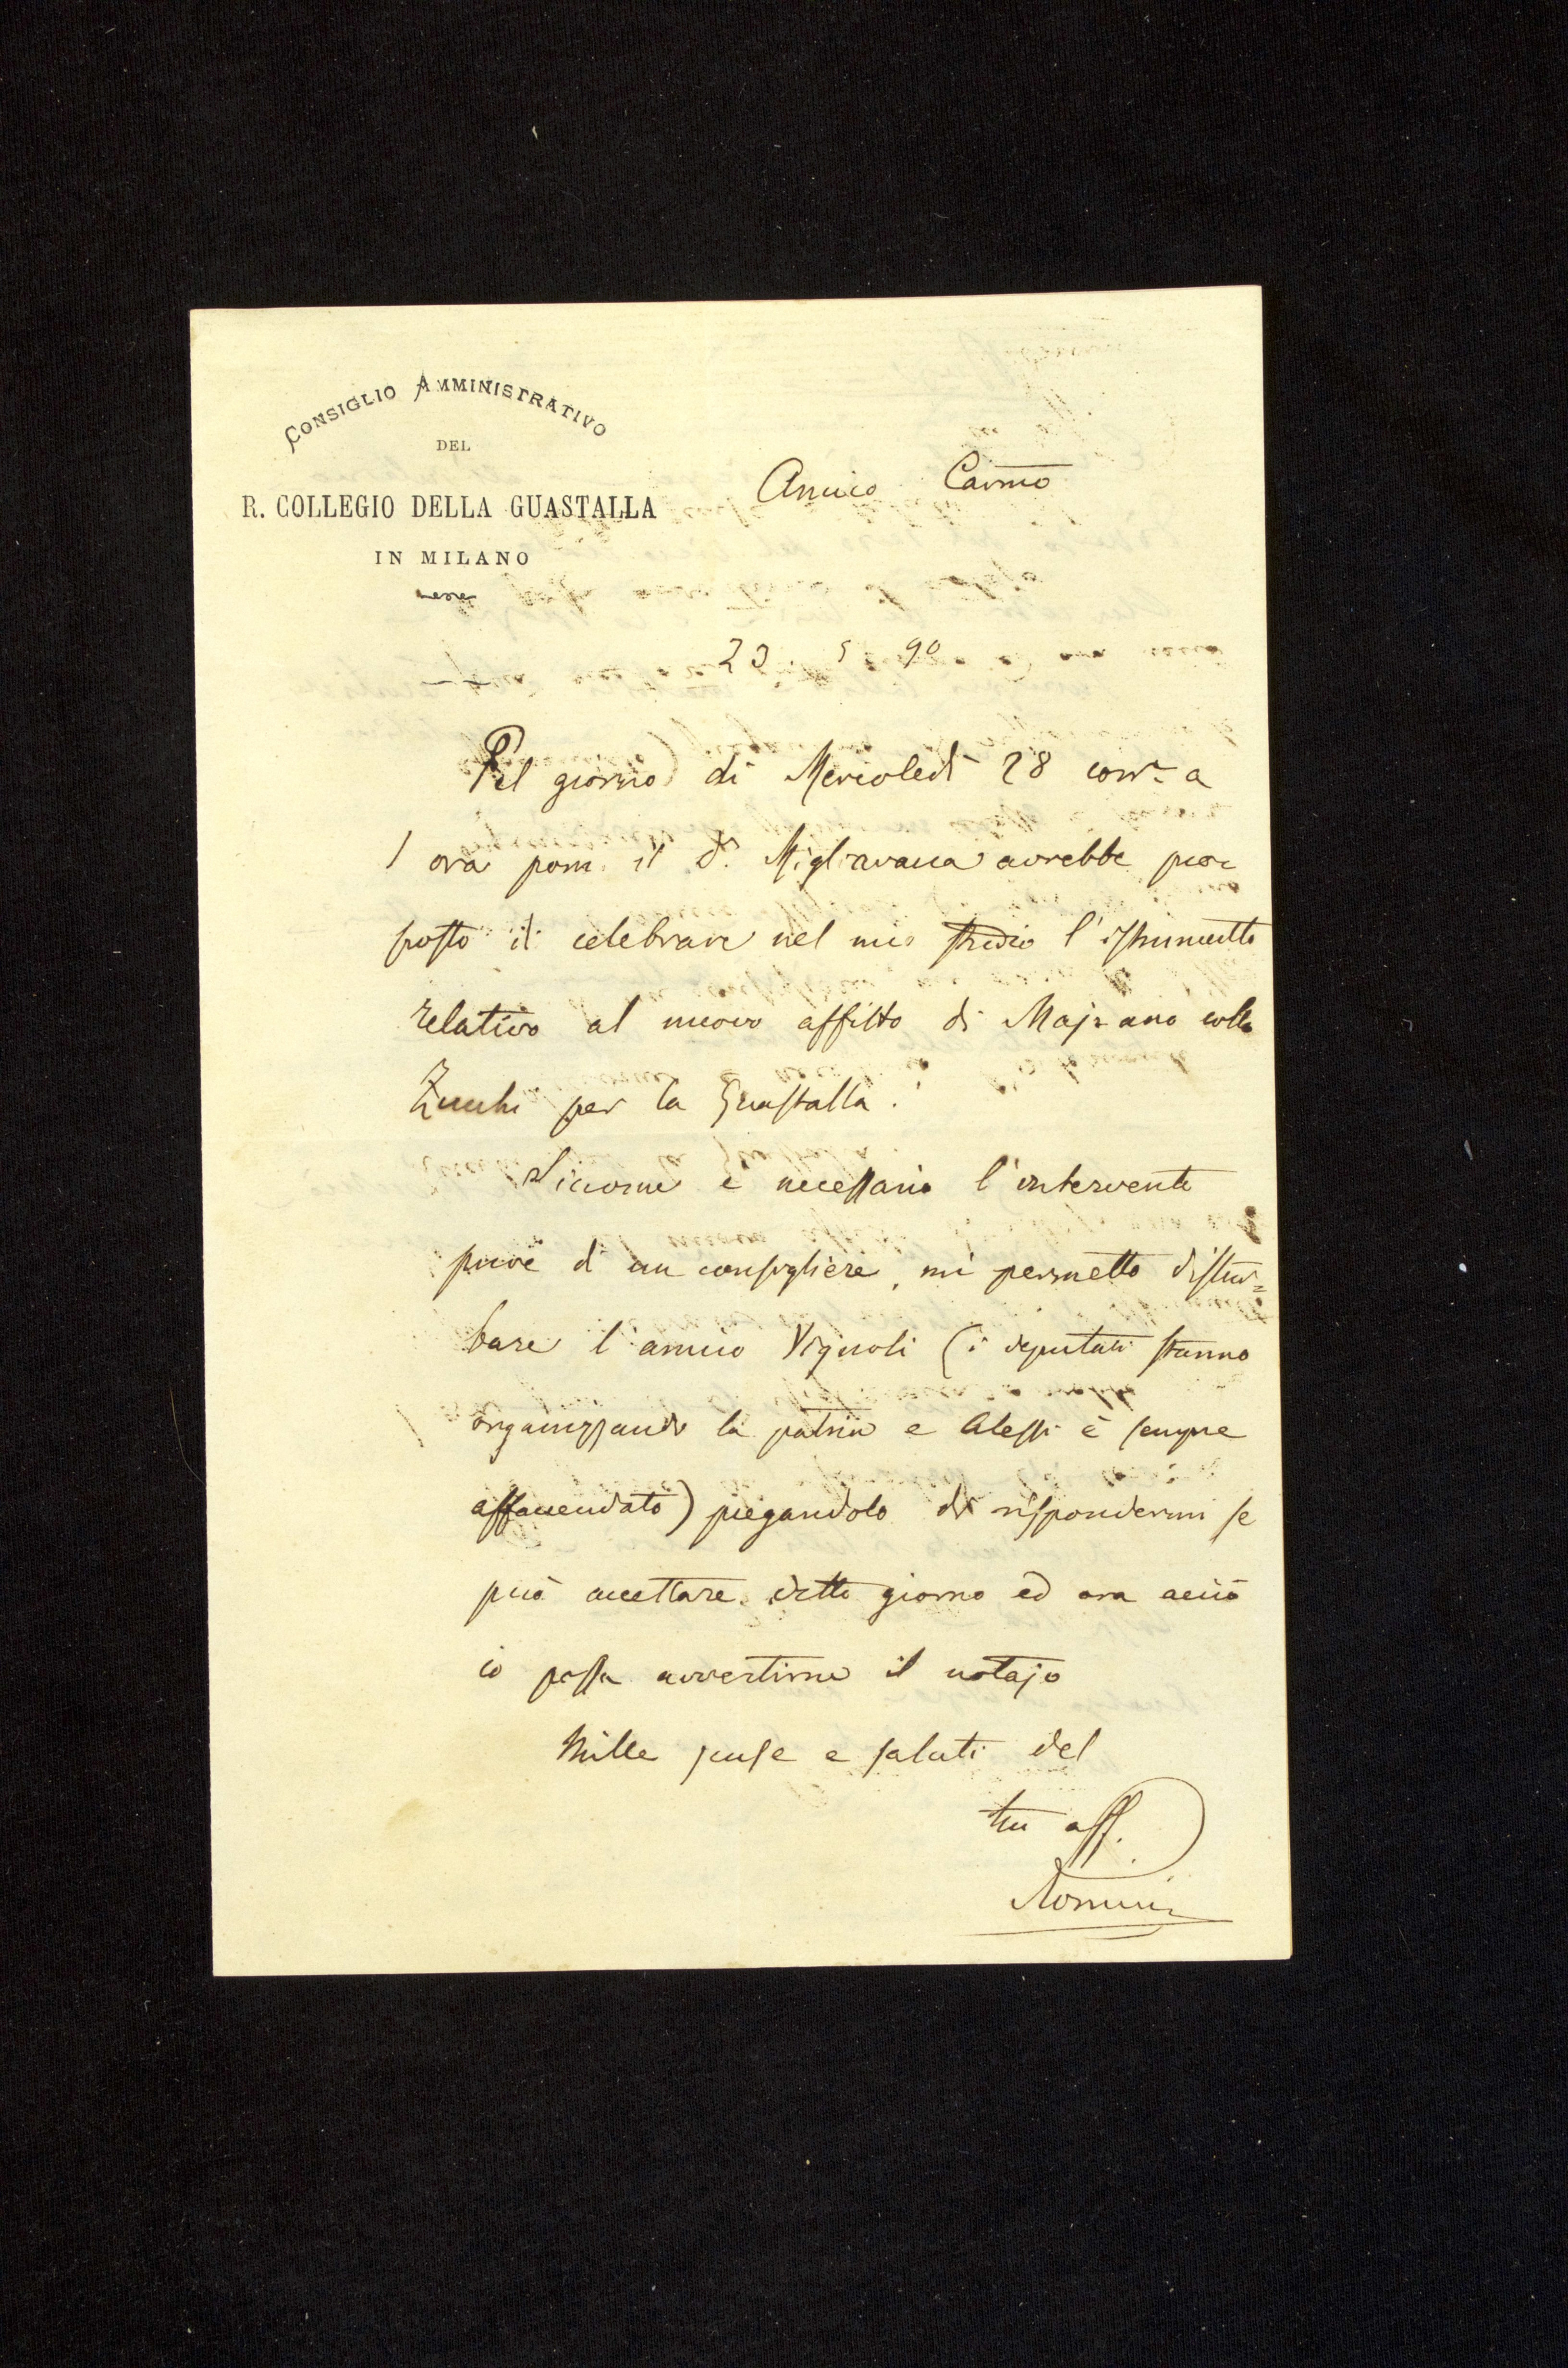 CONSIGLIO AMMINISTRATIVO
DEL
R. COLLEGIO DELLA GUASTALLA
IN MILANO
Amico Carmo
23 5 90
Pel giorno di Mercoledì 28 corr. a
1 ora pom. il Dr. Migliavacca avrebbe pro=
posto il celebrare nel mio studio l'istrumento
relativo al nuovo affitto di Majrano colla
Zucchi per la Guastalla.
Siccome è necessario l'intervento
pure di un consigliere, mi permetto distur=
bare l'amico Vignoli (i deputati stanno
organizzando la patria e Alessi è sempre
affacendato) pregandolo di rispondermi se
può accettare detto giorno ed ora acciò
io possa avvertirne il notajo
Mille scuse e saluti del
tuo aff.